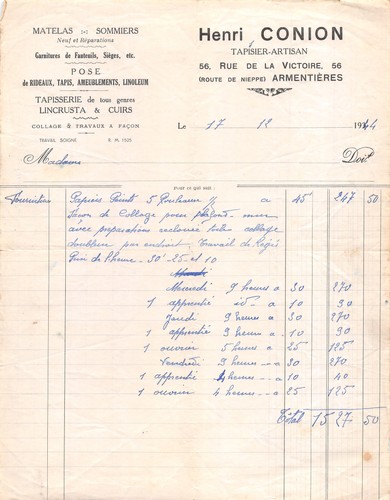 MATELAS SOMMIERS
Neuf et Réparations
Garnitures de Fauteuils, Sièges, etc.
POSE
de RIDEAUX, TAPIS, AMEUBLEMENTS, LINOLEUM
TAPISSERIE de tous genres
LINCRUSTA & CUIRS
COLLAGE & TRAVAUX A FAÇON
TRAVAIL SOIGNÉ R. M. 1525
Henri CONION
TAPISIER-ARTISAN
56, RUE DE LA VICTOIRE, 56
(ROUTE DE NIEPPE) ARMENTIÈRES
Le 17 12 1944
Madame Doit
Pour ce qui suit
Fourniture Papiers Peints 5 1/2 a 45 247 50
de Collage pour plafond mur
avec préparations toile collage
doubleur par endroit Travail de
30 25 et 10
Mardi 9 heures a 30 270
1 apprenti id a 10 90
Jeudi 9 heures a 30 270
1 apprenti 9 heures a 10 90
1 ouvrier 5 heures a 25 125
Vendredi 9 heures a 30 270
1 apprenti 4 heures a 10 40
1 ouvrier 4 heures a 25 125
Total 1527 50